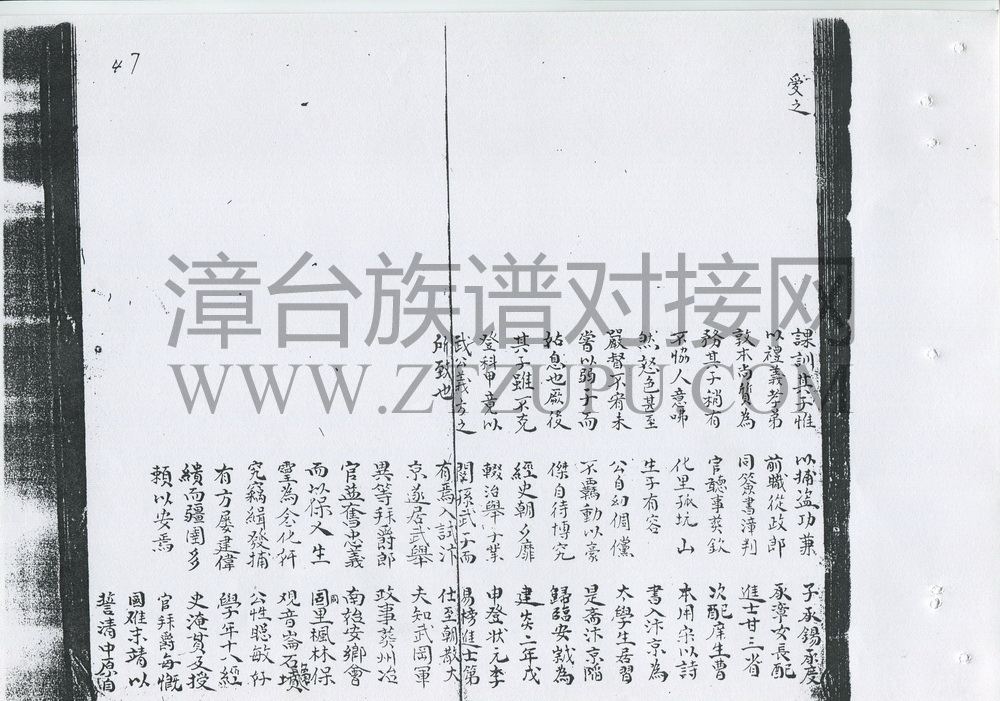 47
愛之
課訓其子惟
以禮義孝弟
敦本尚質為
務其子稍有
不恊人意咈
然怒色甚至
嚴督不宥未
嘗以弱子而
姑息也厥後
其子雖不克
登科甲竟以
武公義方之
所致也
以捕盜功兼
前職從政郎
同簽書漳判
官聽事葬欽
化里孤坑山
生子有容
公自幼倜儻
不羈動以豪
傑自待博究
經史朝夕靡
輟治舉子業
閱孫武子而
有焉入試汴
京遂居武舉
異等拜爵郎
官益奮忠義
而以保乂生
靈為念化奸
究竊緝發捕
有方屢建偉
績而疆圉多
賴以安焉
子承錫承度
承濘女長配
進士廿三省
次配庠生曹
本用宗以詩
書入汴京為
太學生居習
是齋汴京陷
歸臨安試為
建炎二年戊
申登狀元李
易榜進士第
仕至朝散大
夫知武岡軍
政事葬州冶
南後安鄉會
同里楓林保
觀音崙石壙
公性聰敏好
學年十八經
史淹貫及授
官拜爵每慨
國雖未靖以
誓清中原自
漳台族谱对接网
WWW.ZTZUPU.COM